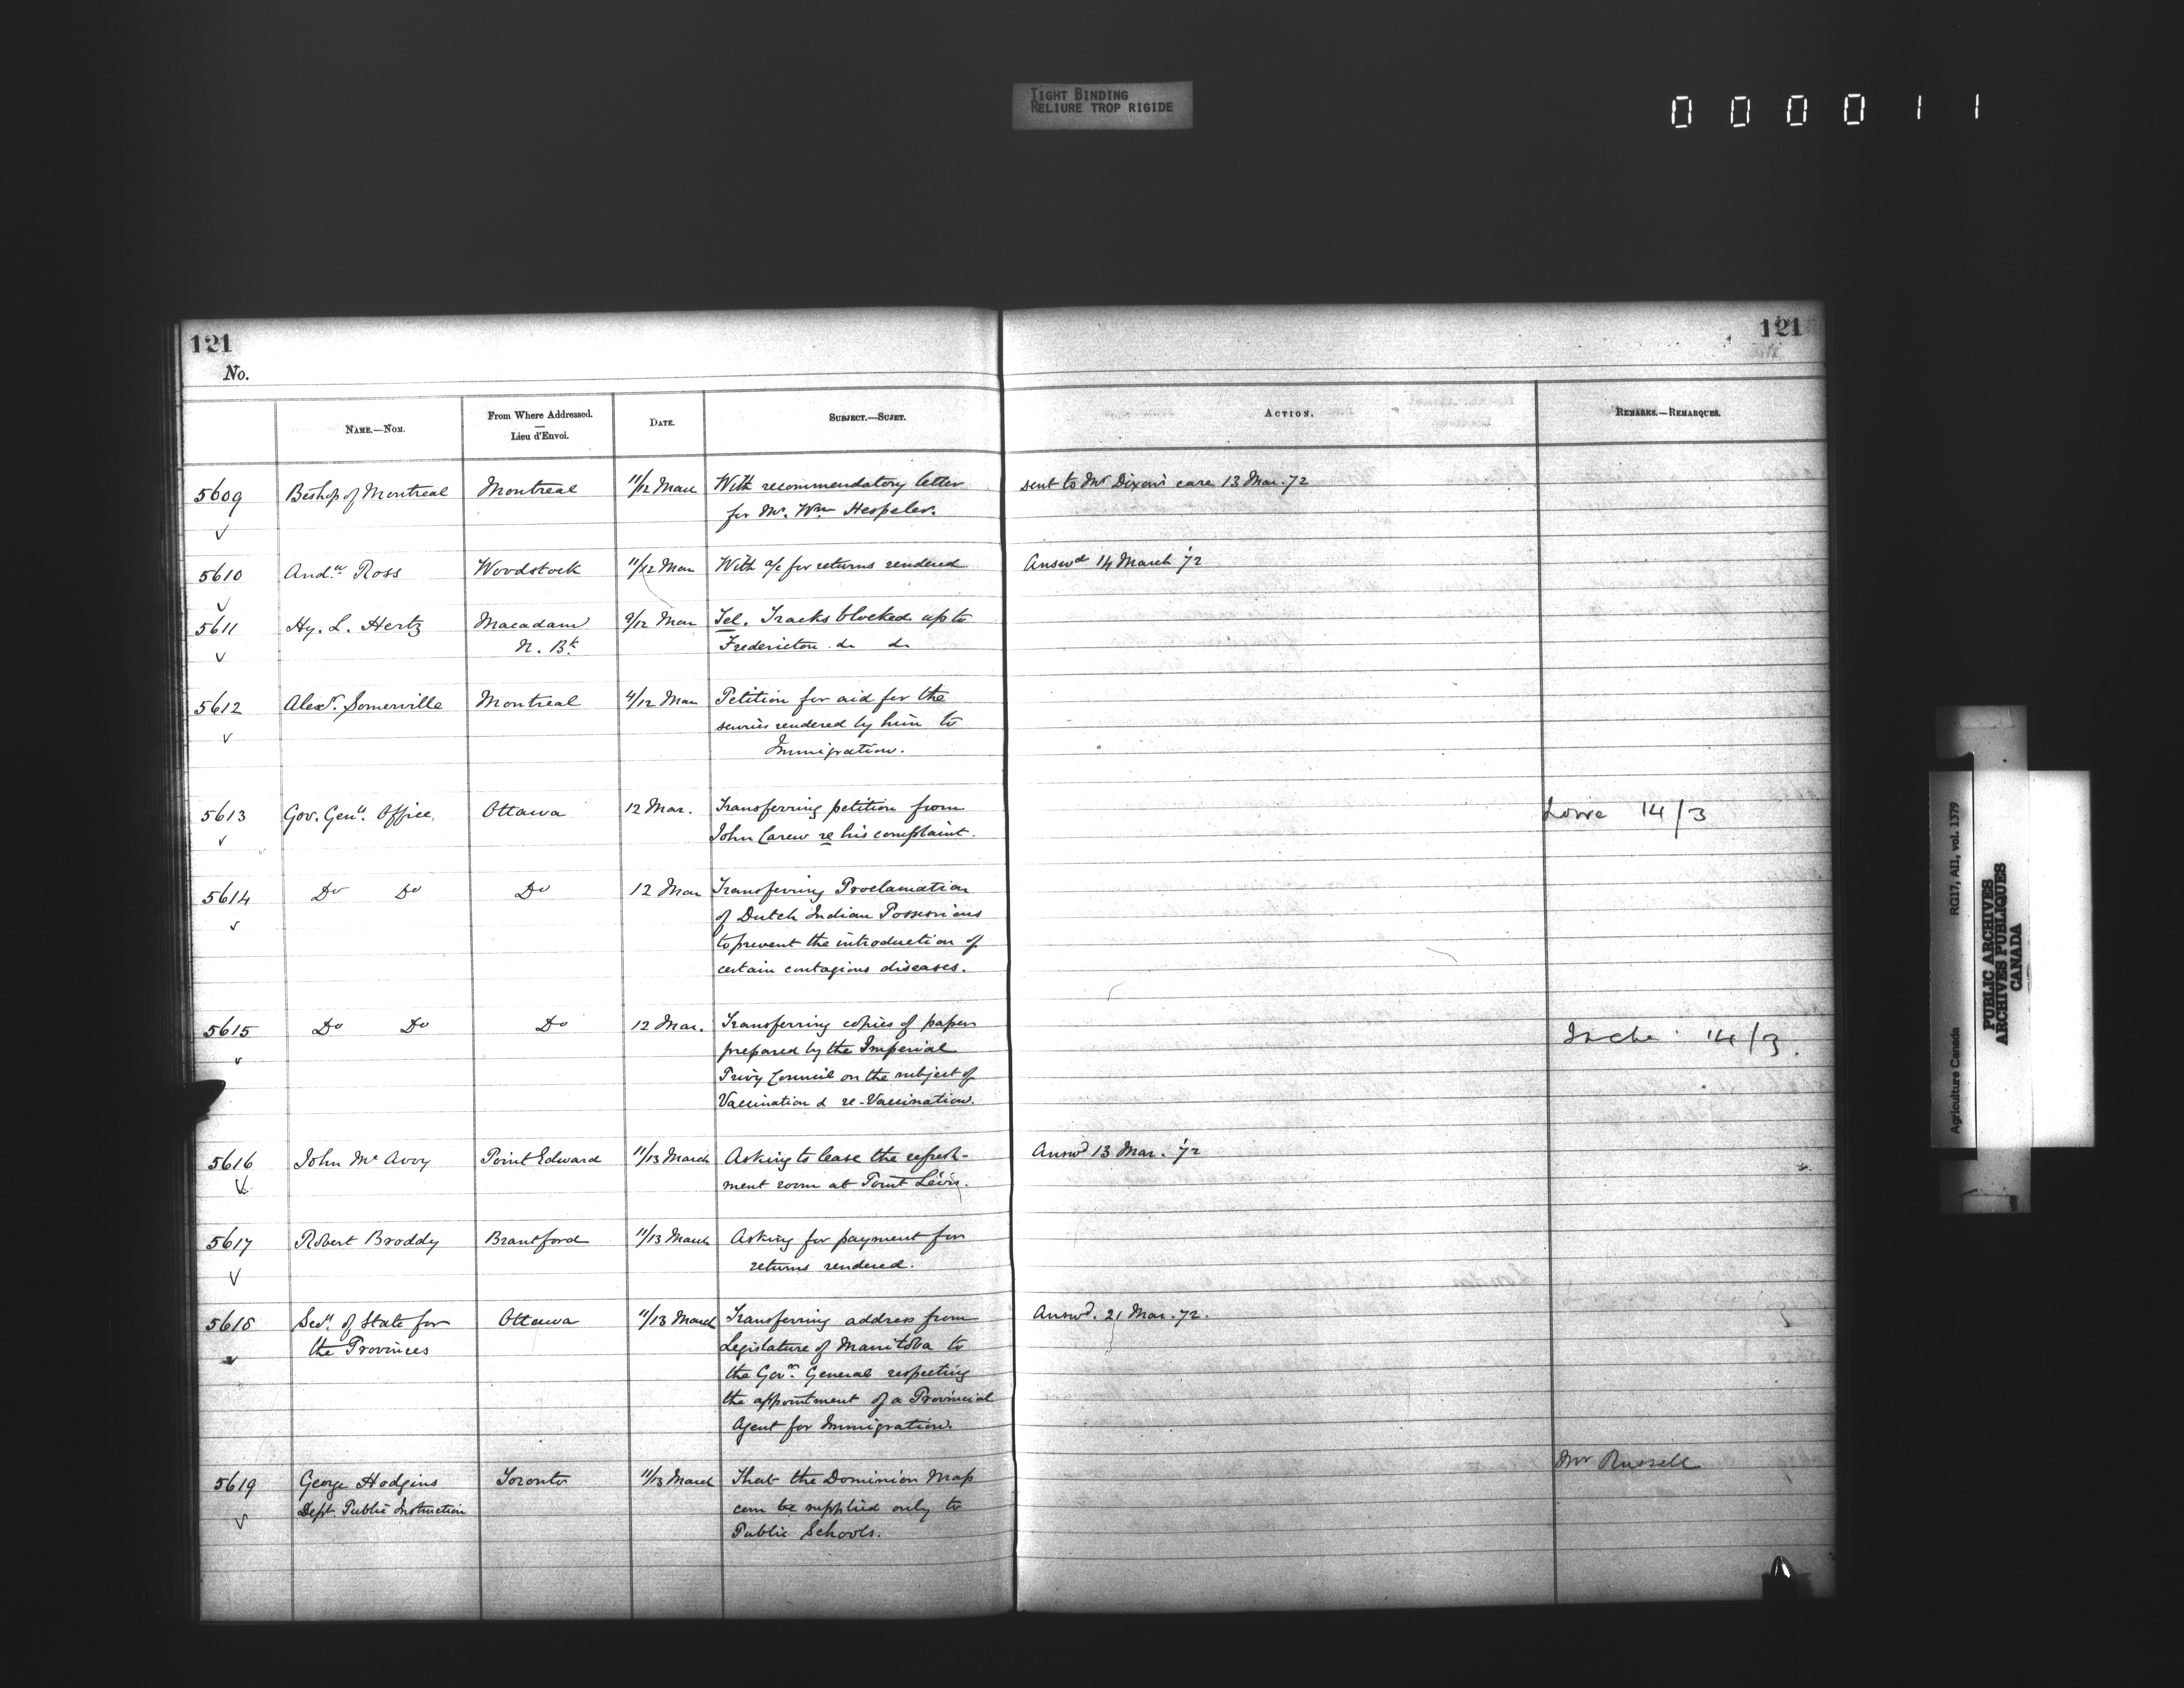 TIGHT BINDING
RELIURE TROP RIGIDE
000011
121
121
No.
NAME.—NOM.
From Where Addressed.
—
Lieu d'Envoi.
DATE.
SUBJECT.—SUJET.
ACTION.
REMARKS.—REMARQUES.
5609 Bishop of Montreal Montreal 11/12 Mar With recommendatory letter sent to Mr Dixon's care 13 Mar. 72
for Mr. Wm Hespeler.
5610 Andw Ross Woodstock 11/12 Mar With a/c for returns rendered Answd 14 March '72
5611 Hy. L. Hertz Macadam 9/12 Mar Tel. Tracks blocked up to
N. Bk Fredericton
5612 Alexr. Somerville Montreal 4/12 Mar Petition for aid for the
services rendered by him to
Immigration.
5613 Gov. Genls. Office, Ottawa 12 Mar. Transferring petition from Lowe 14/3
John Carew re his complaint.
5614 Do Do Do 12 Mar Transferring Proclamation
of Dutch Indian Possessions
to prevent the introduction of
certain contagious diseases.
5615 Do Do Do 12 Mar. Transferring copies of papers 14/3.
prepared by the Imperial
Privy Council on the subject of
Vaccination & re-Vaccination.
5616 John Mc Avoy Point Edward 11/13 March Asking to lease the refresh- Answd 13 Mar. '72
ment room at Point Lévis.
5617 Robert Broddy Brantford 11/13 March Asking for payment for
returns rendered.
5618 Secy. of State for Ottawa 11/13 March Transferring address from Answd. 21 Mar. 72.
the Provinces Legislature of Manitoba to
the Govr. General respecting
the appointment of a Provincial
Agent for Immigration.
Mr Russell
5619 George Hodgins Toronto 11/13 March That the Dominion Map
Dept. Public Instruction can be supplied only to
Public Schools.
Agriculture Canada RG17, AII, vol. 1379
PUBLIC ARCHIVES
ARCHIVES PUBLIQUES
CANADA